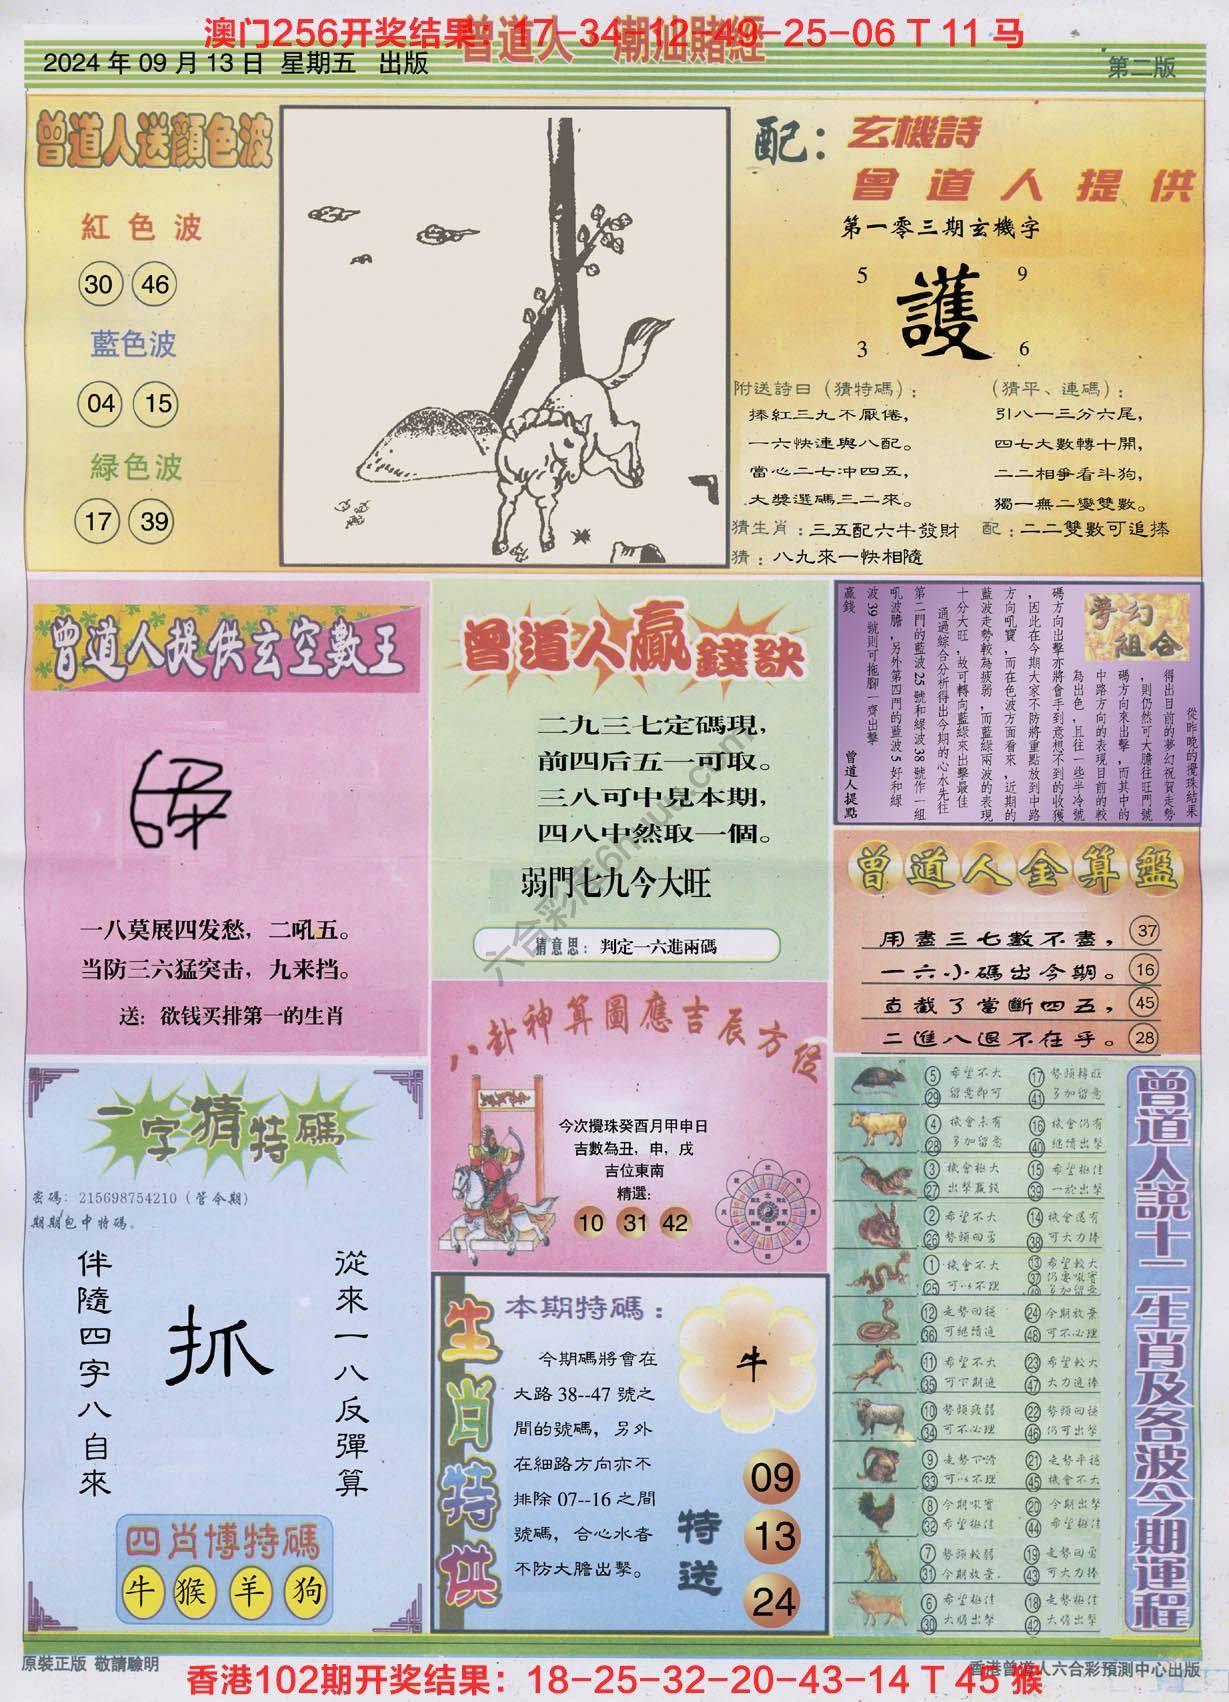 澳门256开奖结果：17-34-12-49-25-06 T 11 马
曾道人 潮汕賭經
2024 年 09 月 13 日 星期五 出版
第二版
曾道人送顔色波
紅色波
30 46
藍色波
04 15
緑色波
17 39
配：
玄機詩
曾道人提供
第一零三期玄機字
5 9
護
3 6
附送詩曰（猜特碼）：
捧紅三九不厭倦，
一六快連與八配。
當心二七冲四五，
大獎選碼三二來。
（猜平、連碼）：
引八一三分六尾，
四七大數轉十開，
二二相爭看斗狗，
獨一無二變雙數。
猜生肖：三五配六牛發財
配：二二雙數可追捧
猜：八九來一快相隨
曾道人提供玄空數王
一八莫展四发愁，二吼五。
当防三六猛突击，九来挡。
送：欲钱买排第一的生肖
曾道人贏錢訣
二九三七定碼現，
前四后五一可取。
三八可中見本期，
四八中然取一個。
弱門七九今大旺
猜意思：判定一六進兩碼
夢幻組合
從昨晚的攪珠結果
得出目前的夢幻祝賀走勢
，則仍然可大膽往旺門號
碼方向來出擊，而其中的
中路方向的表現目前的較
為出色，且往一些半冷號
碼方向出擊亦將會手到意想不到的收獲
，因此在今期大家不防將重點放到中路
方向吼寶，而在色波方面看來，近期的
藍波走勢較為疲弱，而藍綠兩波的表現
十分大旺，故可轉向藍綠來出擊最佳
通過綜合分析得出今期的心水先往
第二門的藍波25號和綠波38號作一組
吼波膽，另外第四門的藍波5好和綠
波39號則可拖腳一齊出擊
贏錢
曾道人提點
曾道人金算盤
用盡三七數不盡， 37
一六小碼出今期。 16
直截了當斷四五， 45
二進八退不在乎。 28
八卦神算圖應吉辰方位
今次攪珠癸酉月甲申日
吉數為丑，申，戌
吉位東南
精選:
10 31 42
一字猜特碼
密碼: 215698754210（管令期）
期期包中特碼。
從來一八反彈算
抓
伴隨四字八自來
四肖博特碼
牛 猴 羊 狗
生肖特供
本期特碼：
今期碼將會在
大路 38--47 號之
間的號碼，另外
在細路方向亦不
排除 07--16 之間
號碼，合心水者
不防大膽出擊。
牛
特送
09
13
24
曾道人説十二生肖及各波今期運程
5 希望不大 17 勢頭轉旺
29 留意即可 41 多加留意
4 機會未有 16 機會仍有
28 多加留意 40 繼續出擊
3 機會極大 15 希望極佳
27 出擊贏錢 39 一於出擊
2 希望不大 14 機會還有
26 勢頭回勇 38 可大力捧
1 機會不大 13 希望較大
25 可以不理
12 走勢回穩 24 今期放棄
36 可繼續追 48 可不必理
11 希望不大 23 希望較大
35 可下期追 47 大力追捧
10 勢頭疲弱 22 勢頭回穩
34 可不必理 46 仍可出擊
9 走勢下滑 21 走勢平穩
33 可以不理 45 機會不大
8 今期吼實 20 今期出擊
32 希望極佳 44 希望極佳
7 勢頭較弱 19 走勢回勇
31 今期放棄. 43 可大力捧
6 希望極佳 18 走勢極佳
30 大膽出擊 42 大膽出擊
原裝正版 敬請驗明
香港曾道人六合彩預測中心出版
香港102期开奖结果：18-25-32-20-43-14 T 45 猴